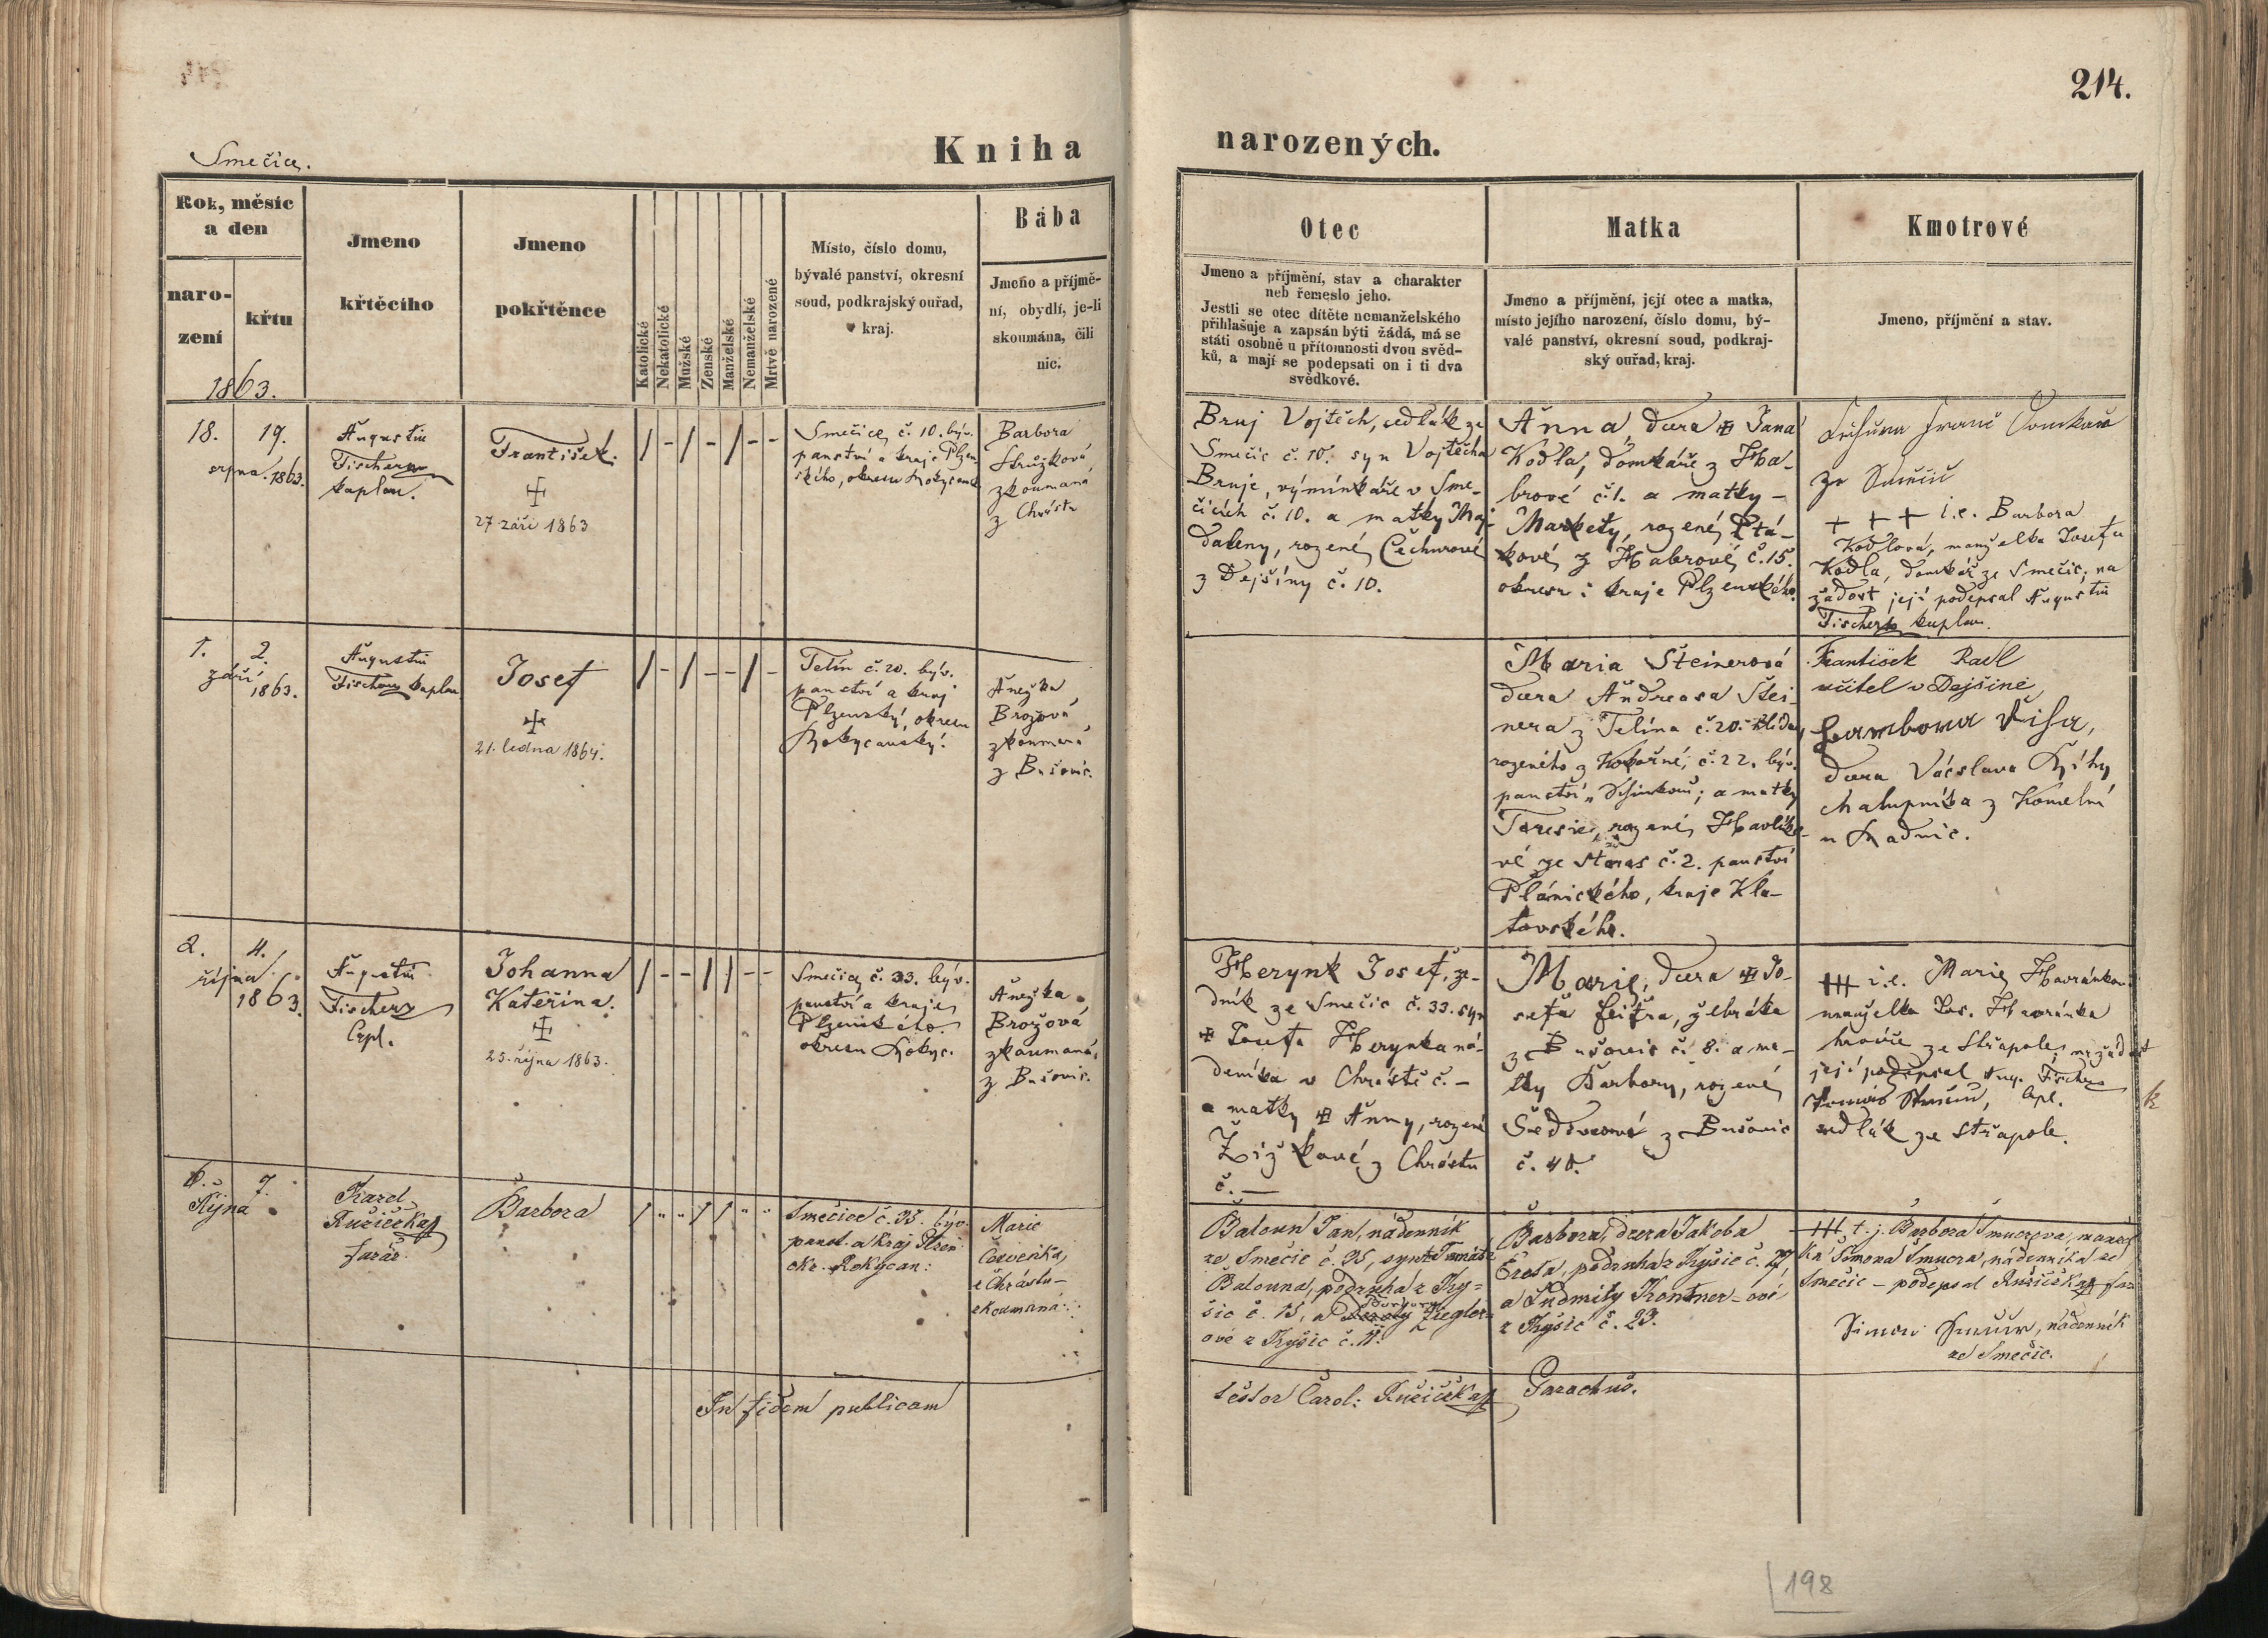 214.
Smečice.
Kniha narozených.
Rok, měsíc
a den
naro-
zení
křtu
1863.
Jmeno
křtěcího
Jmeno
pokřtěnce
Katolické
Nekatolické
Mužské
Ženské
Manželské
Nemanželské
Mrtvě narozené
Místo, číslo domu,
bývalé panství, okresní
soud, podkrajský ouřad,
kraj.
Bába
Jmeno a příjmě-
ní, obydlí, je-li
skoumána, čili
nic.
Otec
Jmeno a příjmění, stav a charakter
neb řemeslo jeho.
Jestli se otec dítěte nemanželského
přihlašuje a zapsán býti žádá, má se
státi osobně u přítomnosti dvou svěd-
ků, a mají se podepsati on i ti dva
svědkové.
Matka
Jmeno a příjmění, její otec a matka,
místo jejího narození, číslo domu, bý-
valé panství, okresní soud, podkraj-
ský ouřad, kraj.
Kmotrové
Jmeno, příjmění a stav.
18. 19.
srpna 1863.
Augustin
Fischer
kaplan.
František.
27 září 1863
/ - / - / - -
Smečice, č. 10. býv.
panství a kraje Plzen-
ského, okresu Rokycansk
Barbora
Stružková
zkoumaná
z Chrástu
Bruj Vojtěch, sedlák ze
Smečic č. 10. syn Vojtěcha
Bruje, výminkáře v Sme-
čicích č. 10. a matky Maj-
daleny, rozené Čechurové
z Dejšiny č. 10.
Anna, dcera Jana
Kodla, domkáře z Ha-
brové č. 1. a matky -
Markety, rozené Ptá-
kové z Habrové č. 15.
okresu i kraje Plzenského.
ze Smečic
+ + + i.e. Barbora
Kodlová, manželka Josefa
Kodla, domkář ze Smečic; na
žádost její podepsal Augustin
Fischer kaplan.
1. 2.
září
1863.
Augustin
Fischer kaplan
Josef
21. ledna 1864.
/ - / - - / -
Telín č. 20. býv.
panství a kraj
Plzenský, okresu
Rokycanský.
Anežka
Brožová
zkoumaná
z Bušovic.
Maria Šteinerová
dcera Andreasa Štei-
nera z Telína č. 20.
rozeného z č. 22. býv.
panství a matky
Teresie, rozené Havlíko-
vé ze Stěras č. 2. panství
Plánického, kraje Kla-
tovského.
František Radl
učitel v Dejšině
dcera Václava Říhy
chalupníka z Komelna
u Radnic.
2. 4.
října
1863.
Augustin
Fischer
Cpl.
Johanna
Kateřina.
25. října 1863.
/ - - / / - -
Smečice č. 33. býv.
panství a kraje
Plzenského.
okresu Rokyc.
Anežka
Brožová
zkoumaná,
z Bušovic.
Herynk Josef, ze-
dník ze Smečic č. 33. syn
Josefa Herynka ná-
deníka v Chrástě č. -
a matky Anny, rozené
Žižkové z Chrástu
č. —
Marie, dcera Jo-
sefa žebráka
z Bušovic č. 8. a ma-
tky Barbory, rozené
z Bušovic
č. 40.
+++ i.e. Marie Havránkov
manželka Jos. Havránka
ze Střapole; na žádost
její podepsal Aug. Fischer
Cpl.
sedlák ze Střapole.
6. 7.
Října
Karel
Růžička
farář
Barbora
/ " " / / " "
Smečice č. 35. býv.
panst. a kraj Plzeň
okr. Rokycan:
Marie
Červenka,
z Chrástu-
zkoumaná.
Baloun Jan, nádenník
ze Smečic č. 35, syn Tomáše
Balouna, podruha z Ky=
šic č. 15, a Barbory Ziegler-
ové z Kyšic č. 11.
Barbora, dcera Jakoba
podruha z Kyšic č. 27,
a Ludmily Kantner-ové
z Kyšic č. 23.
+++ t. j. Barbora Smucrova, manžel
ka Šimona Smucra, nádenníka ze
Smečic - podepsal Růžička far
nádenník
ze Smečic.
In fidem publicam
testor Carol: Růžička Parochus.
198